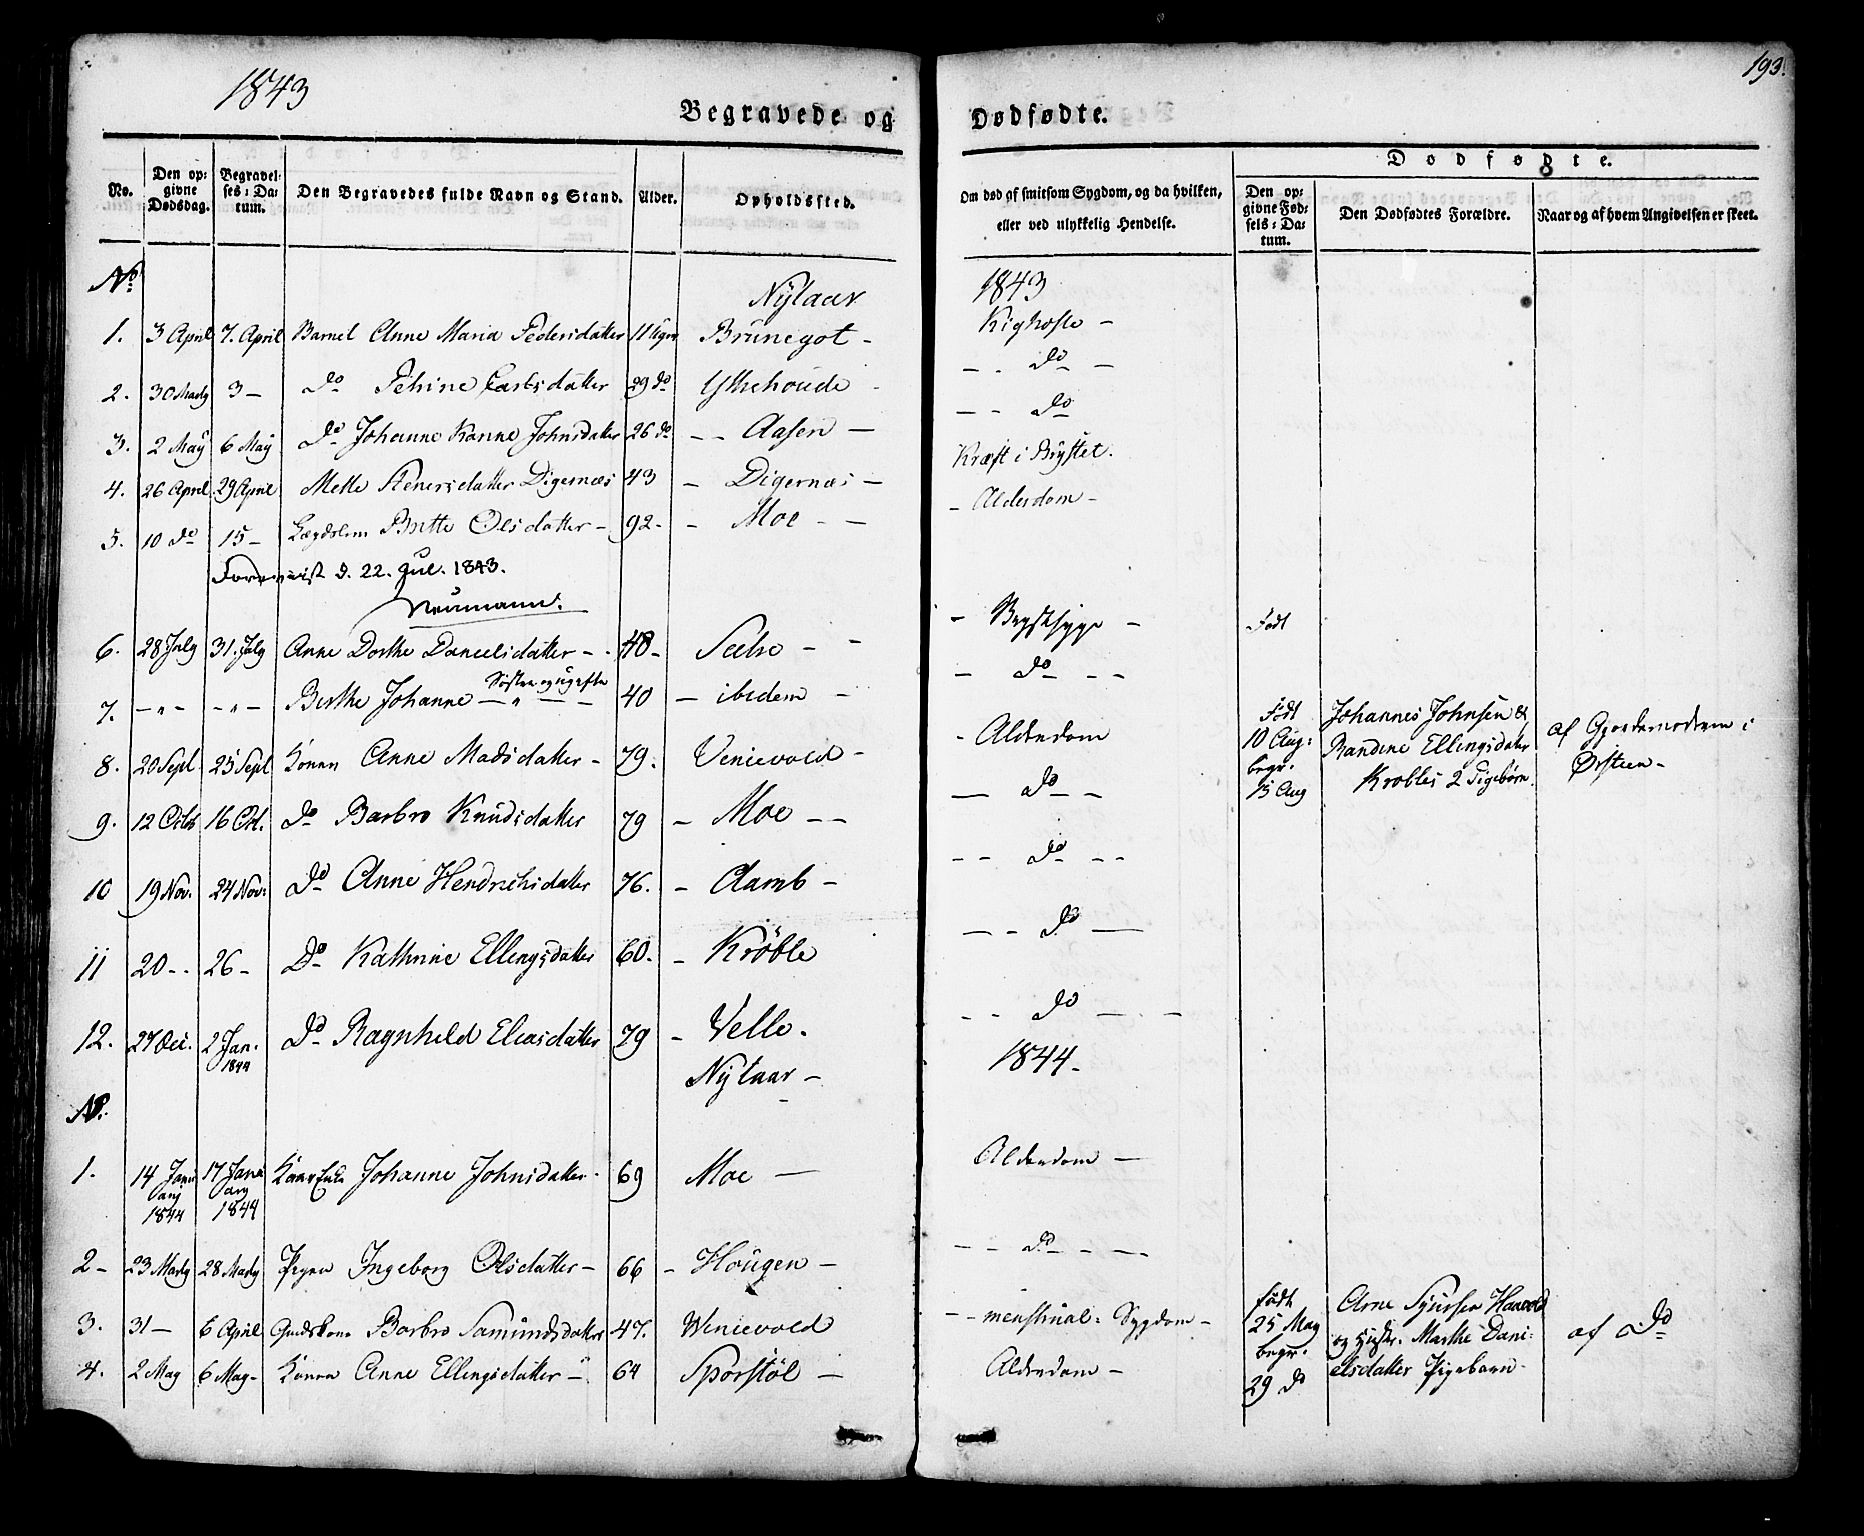 1843
193.
Begravede og Dødfødte.
No.
Den opgivne Dødsdag.
Begravelses-Datum.
Den Begravedes fulde Navn og Stand.
Alder.
Opholdssted.
Om død af smitsom Sygdom, og da hvilken, eller ved ulykkelig Hendelse.
Dødfødte.
Den opgivne Fødsels-Datum.
Den Dødfødtes Forældre.
Naar og af hvem Angivelsen er skeet.
No Nÿtaar 1843
1. 3 April 7. April Barnet Anne Maria Pedersdatter 11 Uger Brünegot - Kighoste -
2. 30 Marty 3 - do Larsdatter 29 do Ythehoude - - do -
3. 2 Maÿ 6 Maÿ do Johanne Johnsdatter 26 do - - Aasen - - - do
4. 26 April 29 April Mette Stenersdatter Digernæs 43 - Digernæs - Kræft i Brÿstet.
5. 10 do 15 - Lægdslem Britte Olsdatter - 92 - - Moe - - - Alderdom -
d. 22. Jul. 1843.
Neumann.
6. 28 July 31. July Anne Dorthe Danielsdatter - 40 - Sætre - - Brystsyge - Født
7. - " - - " - Berthe Johanne - " - Søster og ugifte 40 - ibidem - - do - -
8. 20 Sept 25 Sept Konen Anne Madsdatter - 79. Veniewold - - Alderdom
Født 10 Aug: begr. 15 Aug
Johannes Johnsen & Randine Ellingsdatter Krobles 2 Pigebørn.
af Gjordemoderen i Ørsteen -
9. 12 Octob 16 Oct. do Barbro Knudsdatter 79 - Moe - - - do -
10 19 Nov. 24 Nov: do Anne Hendrichsdatter 76. - Aamb - - - do - -
11 20 - - 26 - do Kathrine Ellingsdatter 60. - Krøble - - do -
12. 27 Dec. 2 Jan. 1844 do Ragnhild Eliasdatter 79 - Velle. - - do - -
No. Nÿtaar - 1844 -
1. 14 Januarÿ 1844 17 Januarÿ 1844 Johanne Johnsdatter - 69 Moe - Alderdom -
2 - 23 Marty 28 Marty Pigen Ingeborg Olsdatter - 66 - Hougen - - - do - - -
3. 31 - 6 April Gmdskone Barbro Samundsdatter 47. Weniewold - - menstrual: Sygdom -
4. 2 May 6 May - Konen Anne Ellingsdatter - 64 Sporstöl - Alderdom -
født 25 May begr. 29 do
Arne Sjursen og Hustr. Marthe Danielsdatter Pigebarn -
af do